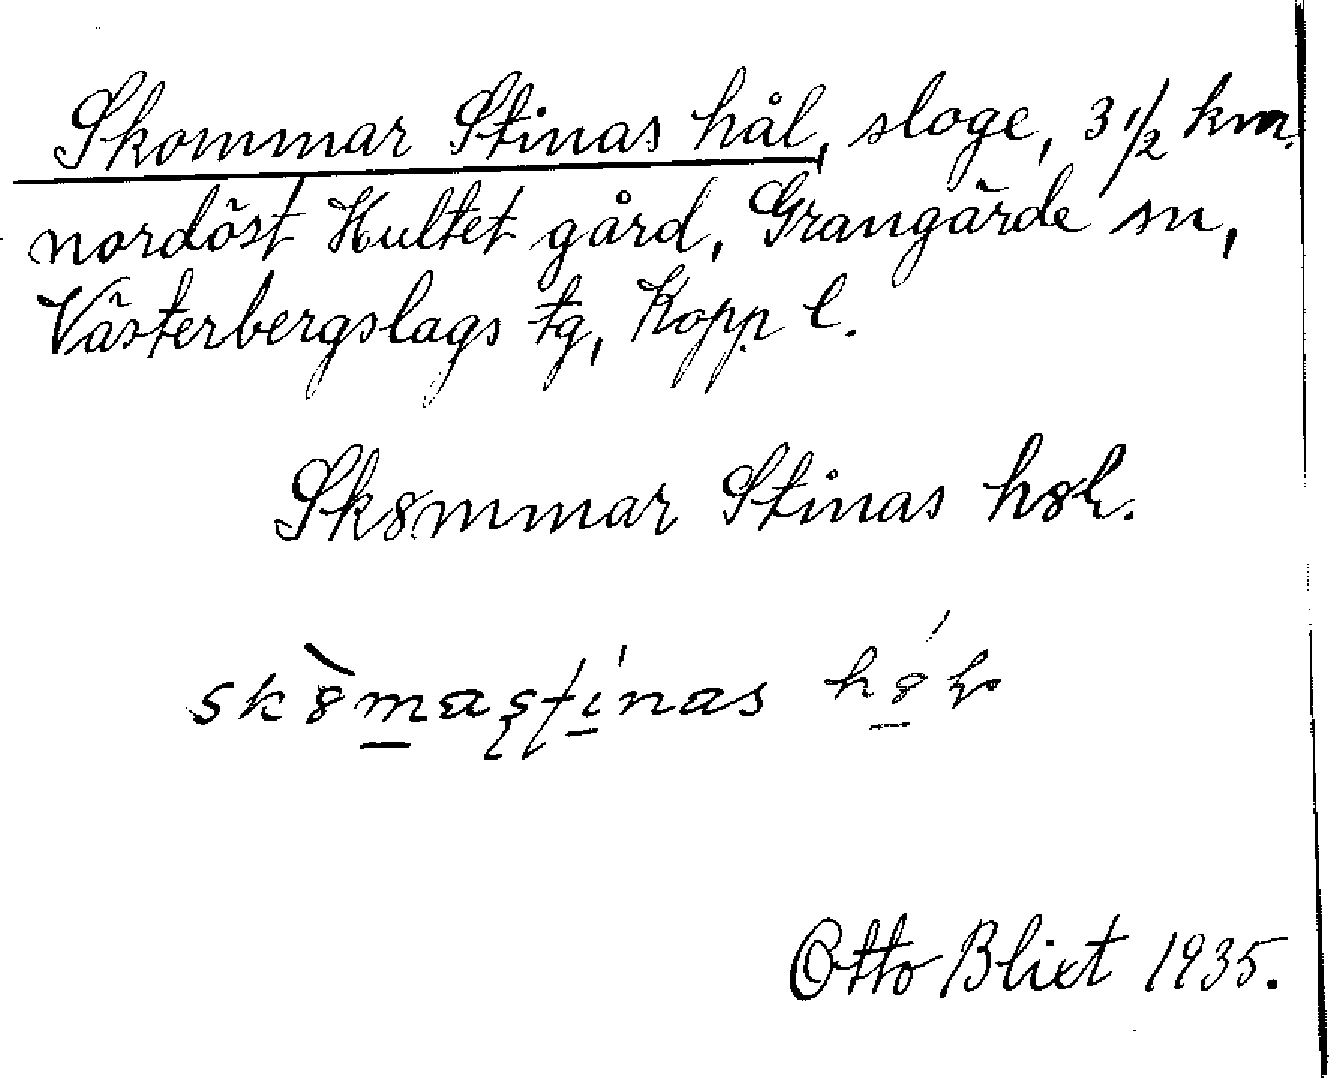 Skommar Stinas hål, sloge, 3 1/2 km.
nordöst Hultet gård, Grangärde sn,
Västerbergslags tg, Kopp l.
Sk8mmar Stinas h8l.
Otto Blixt 1935.